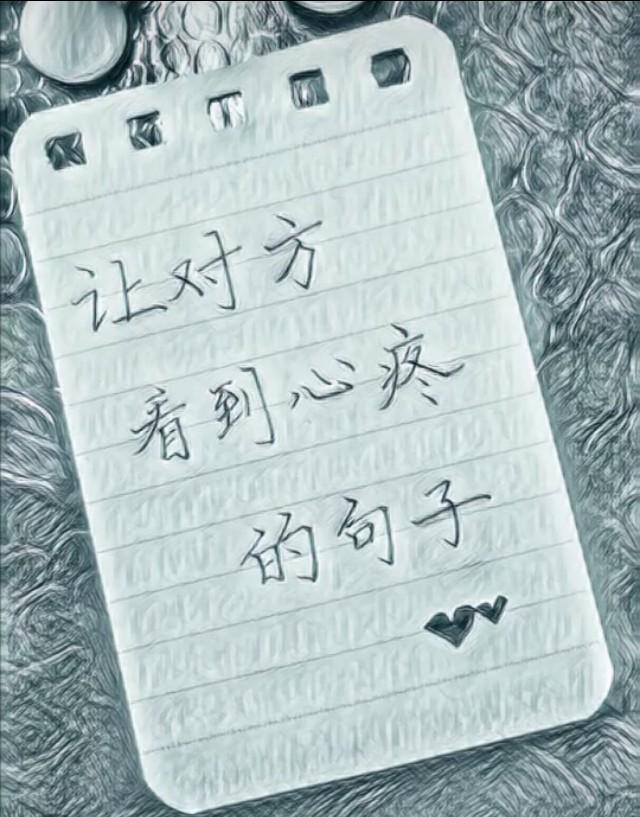 让对方
看到心疼
的句子